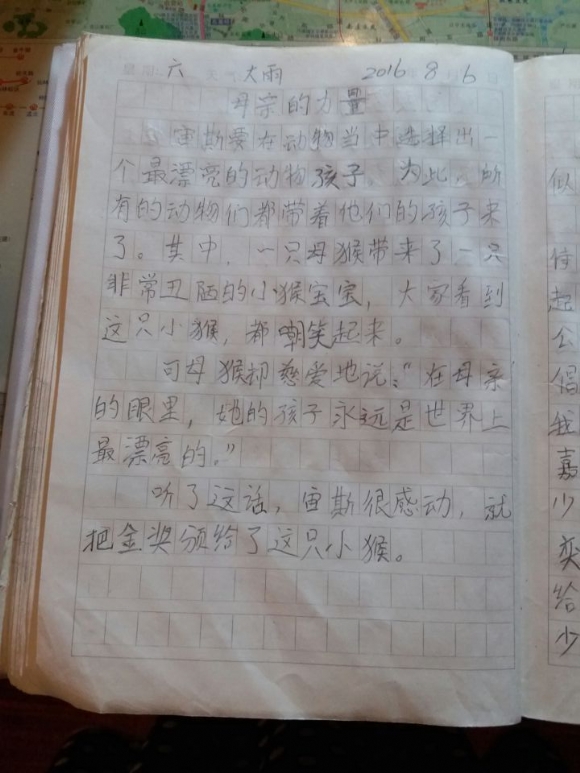 星期 六 天气 大雨 2016 8 月 6 日
母亲的力量
宙斯要在动物当中选择出一
个最漂亮的动物孩子。为此,所
有的动物们都带着他们的孩子来
了。其中,一只母猴带来了一只
非常丑陋的小猴宝宝,大家看到
这只小猴,都嘲笑起来。
可母猴却慈爱地说:“在母亲
的眼里,她的孩子永远是世界上
最漂亮的。”
听了这话,宙斯很感动,就
把金奖颁给了这只小猴。
似
起
公
我
嘉
少
奖
给
少